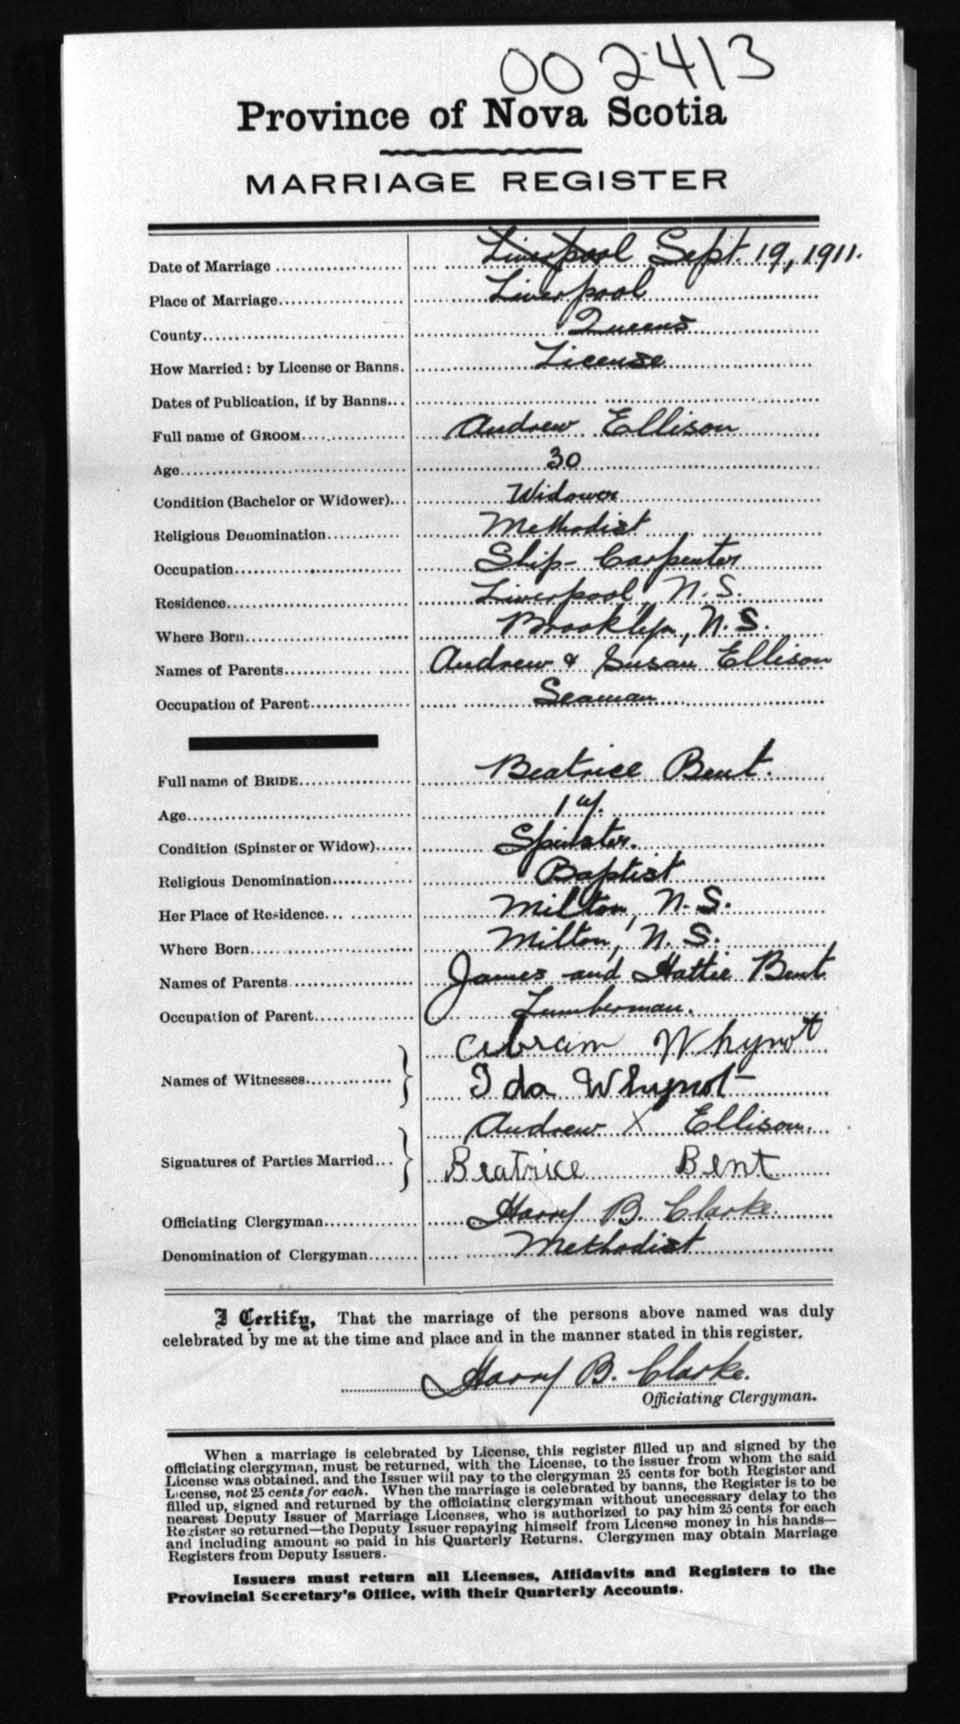 002413
Province of Nova Scotia
MARRIAGE REGISTER
Date of Marriage Liverpool Sept. 19, 1911.
Place of Marriage Liverpool
County Queens
How Married: by License or Banns. License
Dates of Publication, if by Banns
Full name of GROOM Andrew Ellison
Age 30
Condition (Bachelor or Widower) Widower
Religious Denomination Methodist
Occupation Ship-Carpenter
Residence Liverpool, N.S.
Where Born Brooklyn, N.S.
Names of Parents Andrew & Susan Ellison
Occupation of Parent Seaman
Full name of BRIDE Beatrice Bent.
Age
Condition (Spinster or Widow) Spinster.
Religious Denomination Baptist
Her Place of Residence Milton, N.S.
Where Born Milton, N.S.
Names of Parents James and Hattie Bent
Occupation of Parent Lumberman.
Abram Whynot
Names of Witnesses Ida Whynot
Andrew X Ellison.
Signatures of Parties Married Beatrice Bent
Officiating Clergyman Harry B. Clarke.
Denomination of Clergyman Methodist
I Certify, That the marriage of the persons above named was duly
celebrated by me at the time and place and in the manner stated in this register.
Harry B. Clarke.
Officiating Clergyman.
When a marriage is celebrated by License, this register filled up and signed by the
officiating clergyman, must be returned, with the License, to the issuer from whom the said
License was obtained, and the Issuer will pay to the clergyman 25 cents for both Register and
License, not 25 cents for each. When the marriage is celebrated by banns, the Register is to be
filled up, signed and returned by the officiating clergyman without unnecessary delay to the
nearest Deputy Issuer of Marriage Licenses, who is authorized to pay him 25 cents for each
Register so returned—the Deputy Issuer repaying himself from License money in his hands—
and including amount so paid in his Quarterly Returns. Clergymen may obtain Marriage
Registers from Deputy Issuers.
Issuers must return all Licenses, Affidavits and Registers to the
Provincial Secretary's Office, with their Quarterly Accounts.